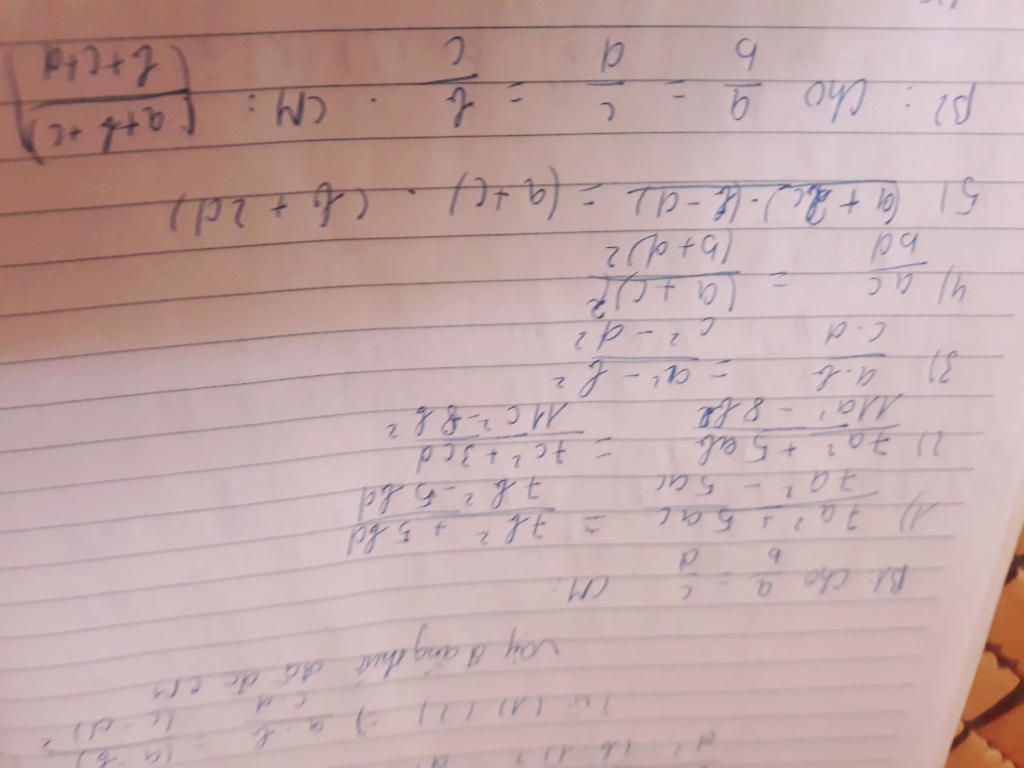 Từ (1) (2) => a.b / c.d = (a-b)² / (c-d)²
Vậy đẳng thức đã đc CM
B1: Cho a/b = c/d CM:
1) (7a² + 5ac) / (7a² - 5ac) = (7b² + 5bd) / (7b² - 5bd)
2) (7a² + 5ab) / (11a² - 8b²) = (7c² + 3cd) / (11c² - 8b²)
3) a.b / c.d = (a² - b²) / (c² - d²)
4) ac / bd = (a + c)² / (b + d)²
5) (a + 2c).(b - d) = (a + c) . (b + 2d)
B2: Cho a/b = c/d = b/c . CM: (a+b+c / b+c+d)